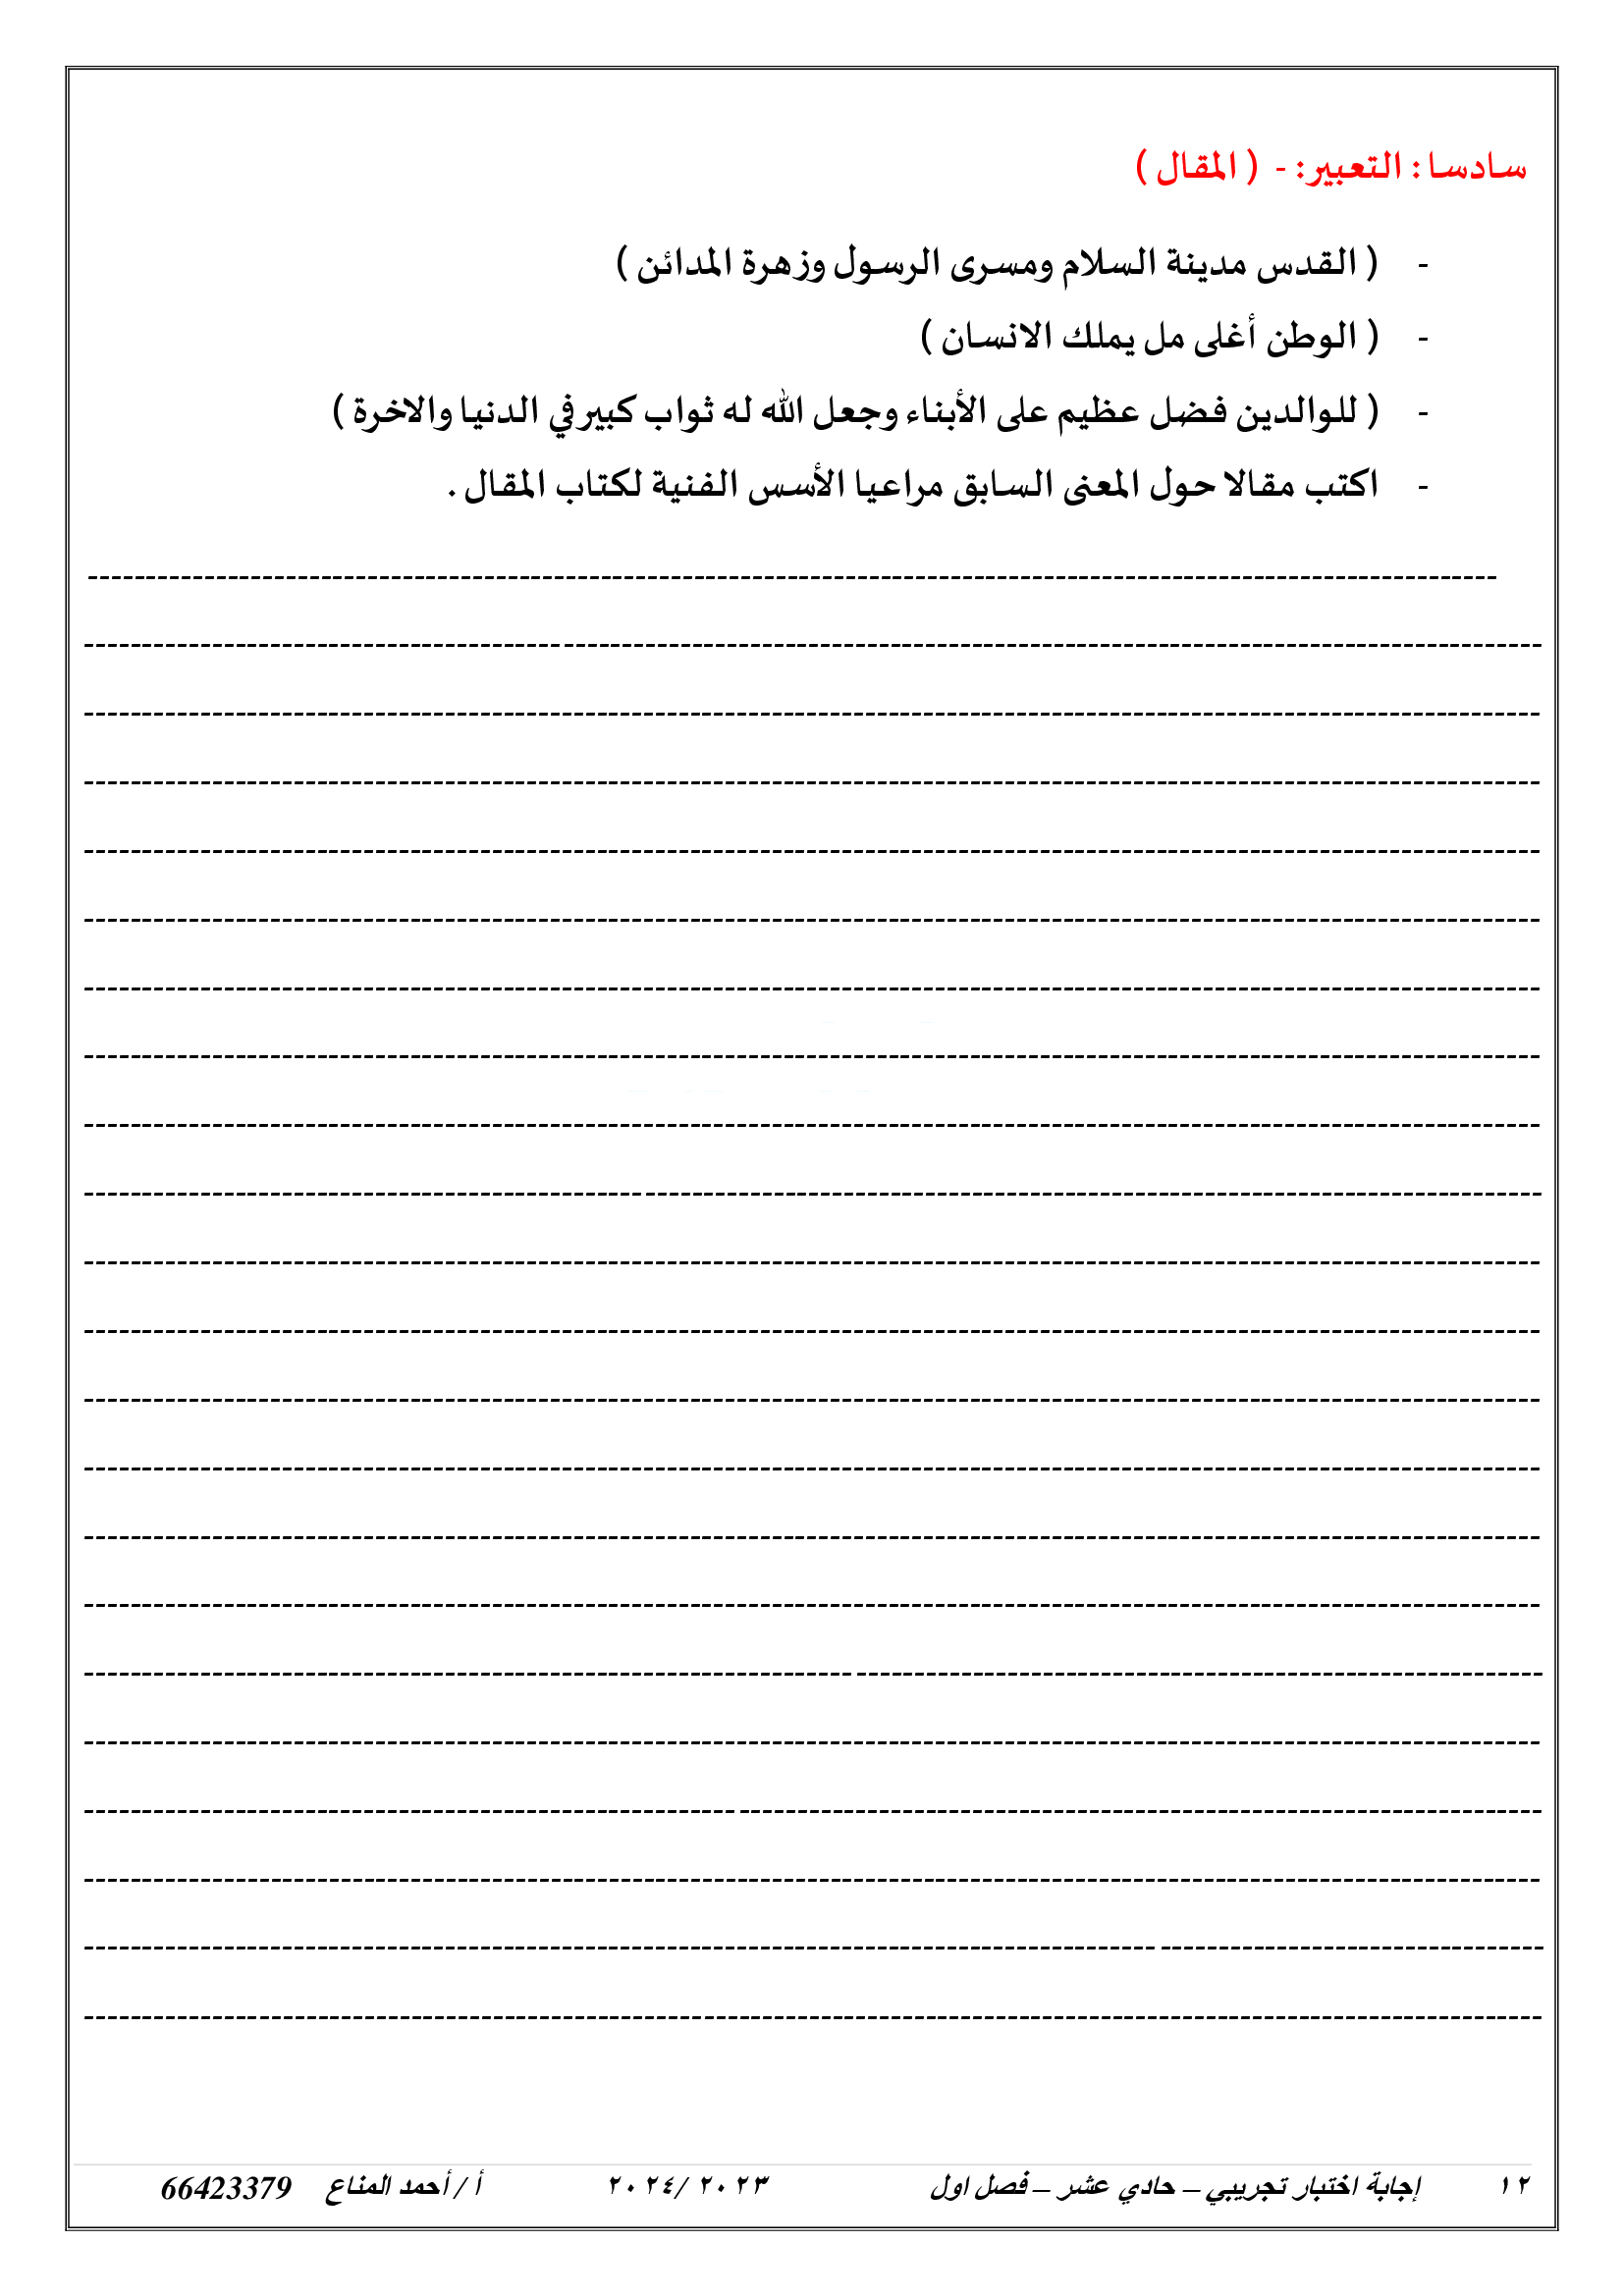 سادسا : التعبير: - ( المقال )
- ( القدس مدينة السلام ومسرى الرسول وزهرة المدائن )
- ( الوطن أغلى مل يملك الانسان )
- ( للوالدين فضل عظيم على الأبناء وجعل الله له ثواب كبير في الدنيا والاخرة )
- اكتب مقالا حول المعنى السابق مراعيا الأسس الفنية لكتاب المقال .
١٢ إجابة اختبار تجريبي – حادي عشر – فصل اول ٢٠٢٣ /٢٠٢٤ أ / أحمد المناع 66423379